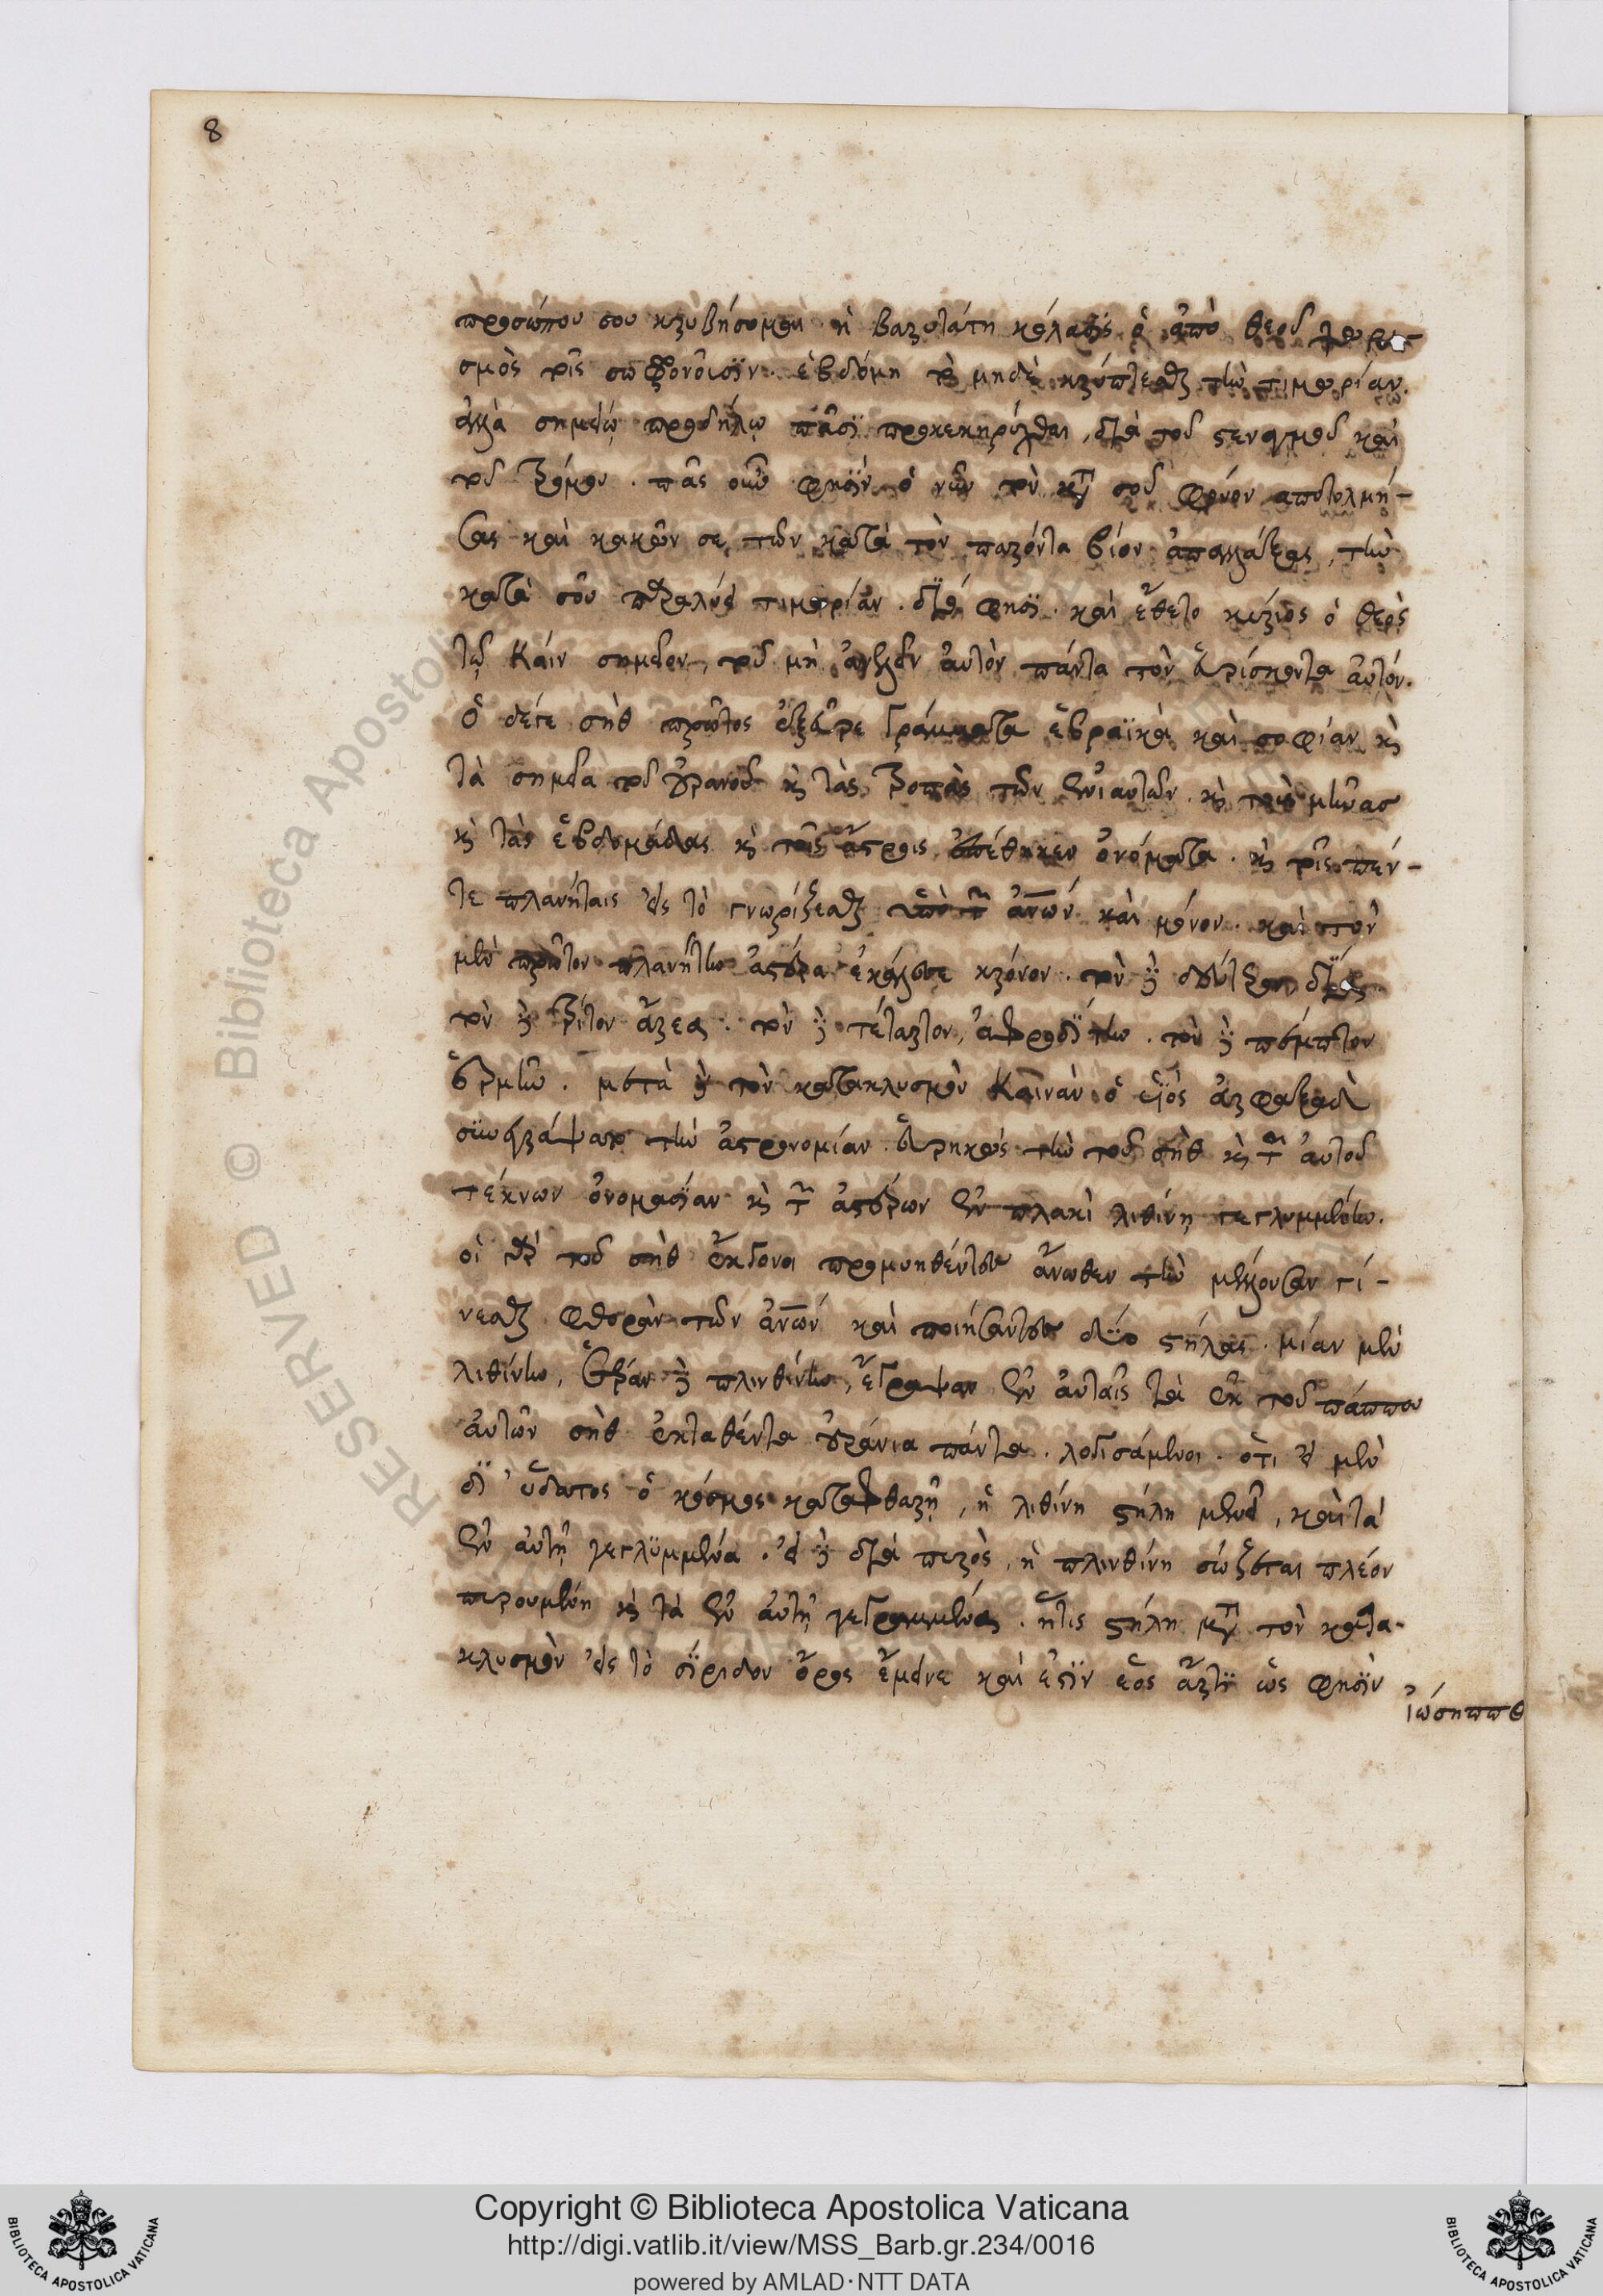 8
προσώπου σου κρυβήσομαι ἡ βαρυτάτη κόλασις ὁ ἀπὸ θεοῦ χωρι-
σμὸς τοῖς σωφρονοῦσιν. ἑβδόμη τὸ μηδὲ κρύπτεσθαι τὴν τιμωρίαν.
ἀλλὰ σημείῳ προδήλῳ πᾶσι προκεκηρύχθαι, διὰ τοῦ στεναγμοῦ καὶ
τοῦ τρόμου. πᾶς οὖν φησὶν ὁ νῦν τὸν κατὰ σοῦ φόνον αποτολμή-
σας καὶ κακῶν σε τῶν κατὰ τὸν παρόντα βίον ἀπαλλάξας, τὴν
κατὰ σοῦ παραλύει τιμωρίαν. διό φησι. καὶ ἔθετο κύριος ὁ θεὸς
τῷ Κάιν σημεῖον, τοῦ μὴ ἀνελεῖν αὐτὸν πάντα τὸν εὑρίσκοντα αὐτόν.
Ὁ δέ γε σὴθ πρῶτος ἐξεῦρε γράμματα ἑβραϊκὰ καὶ σοφίαν κὶ
τὰ σημεῖα τοῦ οὐρανοῦ κὶ τὰς τροπὰς τῶν ἐνιαυτῶν κὶ τοὺς μῆνας
κὶ τὰς ἑβδομάδας κὶ τοῖς ἄστροις ἐπέθηκεν ὀνόματα. κὶ τοῖς πέν-
τε πλανήταις εἰς τὸ γνωρίζεσθαι ὑπὸ τῶν ἀνων καὶ μόνον. καὶ τὸν
μὲν πρῶτον πλανήτην ἀστέρα ἐκάλεσε κρόνον. τὸν δὲ δεύτερον δία,
τὸν δὲ τρίτον ἄρεα. τὸν δὲ τέταρτον, ἀφροδίτην. τὸν δὲ πέμπτον
ἑρμῆν. μετὰ δὲ τὸν κατακλυσμὸν Καϊνὰν ὁ υἱὸς ἀρφαξὰδ
συνεγράψατο τὴν ἀστρονομίαν. εὑρηκὼς τὴν τοῦ σὴθ κὶ τῶν αὐτοῦ
τέκνων ὀνομασίαν κὶ τῶν ἀστέρων ἐν πλακὶ λιθίνῃ γεγλυμμένην.
οἱ γὰρ τοῦ σὴθ ἔκγονοι προμυηθέντες ἄνωθεν τὴν μέλλουσαν γί-
νεσθαι φθορὰν τῶν ἀνων καὶ ποιήσαντες δύο στήλας. μίαν μὲν
λιθίνην, ἑτέραν δὲ πλινθίνην, ἔγραψαν ἐν αὐταῖς τὰ ἐκ τοῦ πάππου
αὐτῶν σὴθ ἐκτεθέντα οὐράνια πάντα. λογισάμενοι. ὅτι εἰ μὲν
δι' ὕδατος ὁ κόσμος καταφθαρῇ, ἡ λιθίνη στήλη μένει, καὶ τὰ
ἐν αὐτῇ γεγλυμμένα. εἰ δὲ διὰ πυρὸς, ἡ πλινθίνη σώζεται πλέον
πυρουμένη κὶ τὰ ἐν αὐτῇ γεγραμμένα. ἥτις στήλη μετὰ τὸν κατα-
κλυσμὸν εἰς τὸ σίριδον ὄρος ἔμεινε καί ἐστιν ἕως ἄρτι ὥς φησὶν
ἰώσηππο